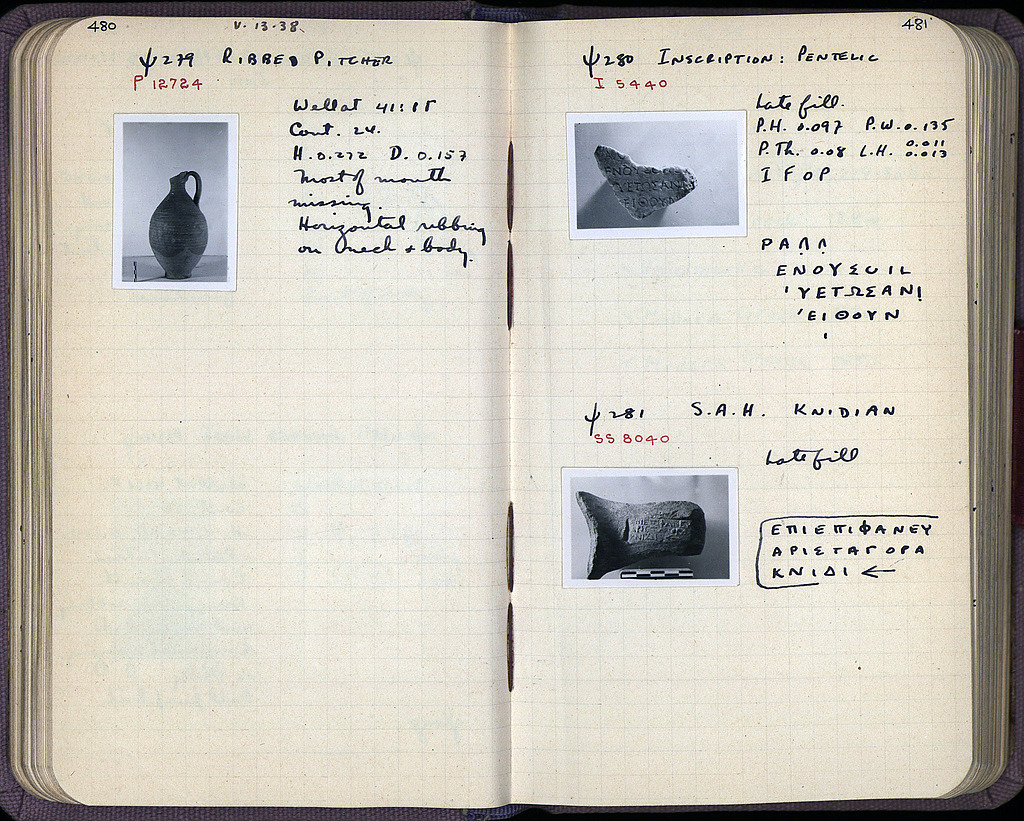 480
V·13·38
Ψ279 RIBBED PITCHER
P 12724
Well at 41:18
Cont. 24.
H. 0.272 D. 0.157
Most of mouth
missing.
Horizontal ribbing
on neck + body.
481
Ψ280 INSCRIPTION: PENTELIC
I 5440
Late fill.
P.H. 0.097 P.W. 0.135
P.Th. 0.08 L.H. 0.011
0.013
I F O P
ΕΙΘΟΥΝ
Ψ281 S.A.H. KNIDIAN
SS 8040
Late fill
ΕΠΙΕΠΙΦΑΝΕΥ
ΑΡΙΣΤΑΓΟΡΑ
ΚΝΙΔΙ ←